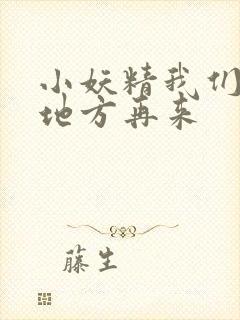 小妖精我们
地方再来
藤生